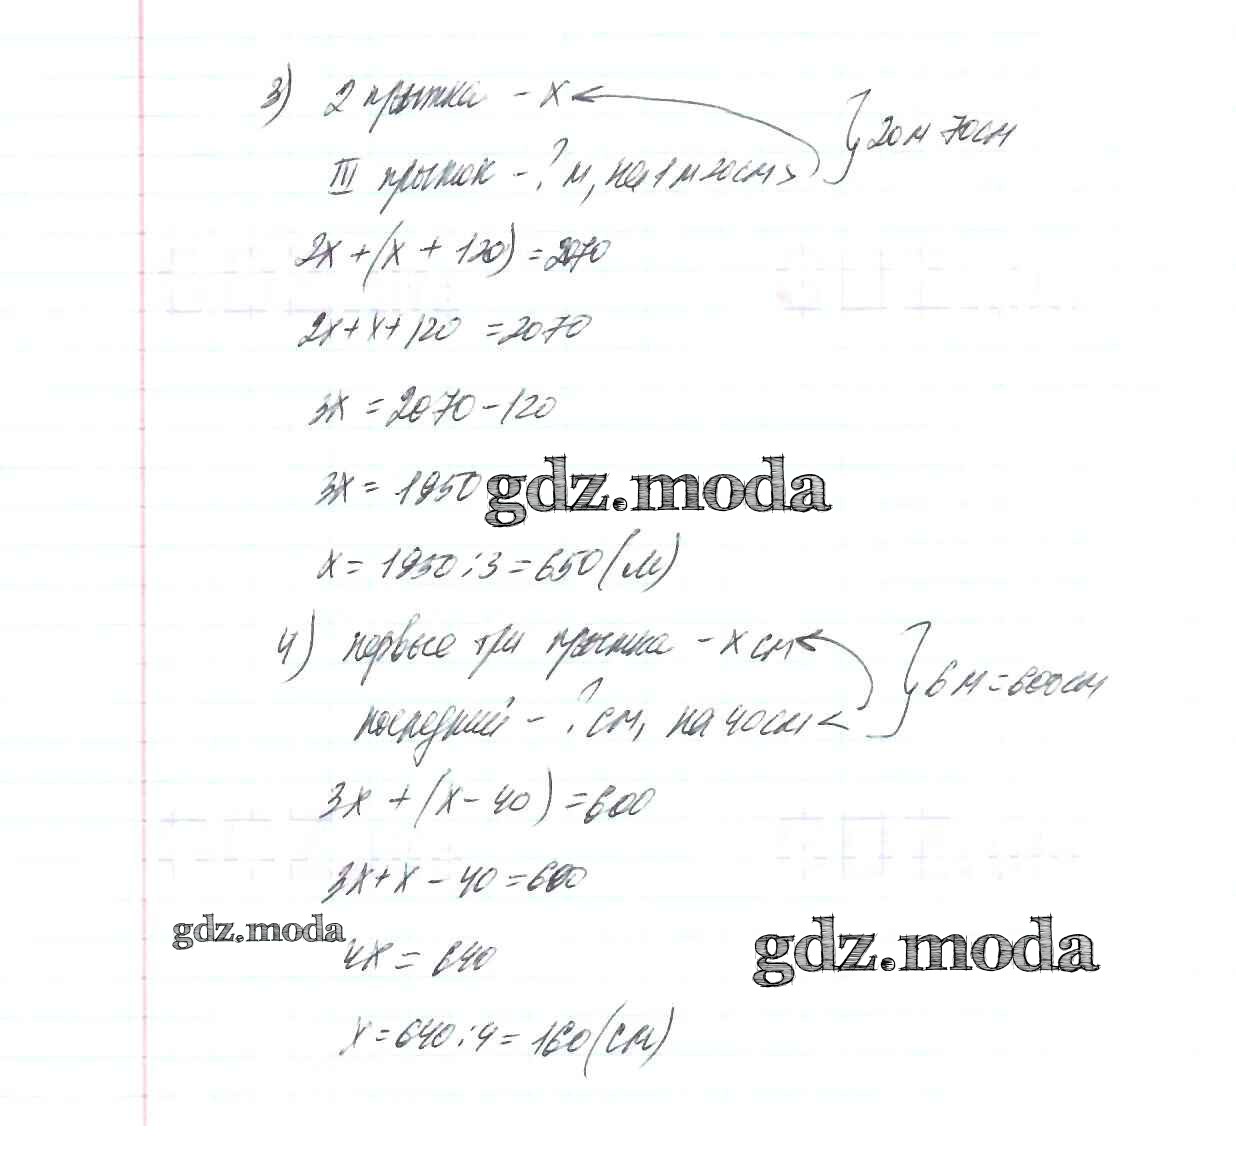 3) 2 прыжка - x 20м 70см
III прыжок - ? м, на 1 м 20см >
2x + (x + 120) = 2070
2x + x + 120 = 2070
3x = 2070 - 120
3x = 1950
gdz.moda
x = 1950 : 3 = 650 (м)
4) первые три прыжка - x см 6 м = 600см
последний - ? см, на 40см <
3x + (x - 40) = 600
3x + x - 40 = 600
gdz.moda
4x = 640
gdz.moda
x = 640 : 4 = 160 (см)